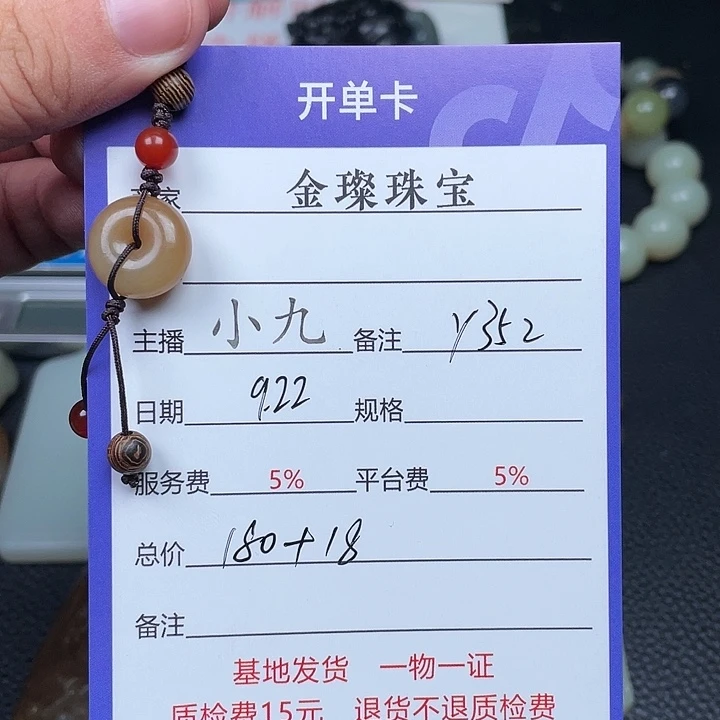 开单卡
家 金璨珠宝
主播 小九 备注 Y352
日期 9.22 规格
服务费 5% 平台费 5%
总价 180+18
备注
基地发货 一物一证
质检费15元 退货不退质检费